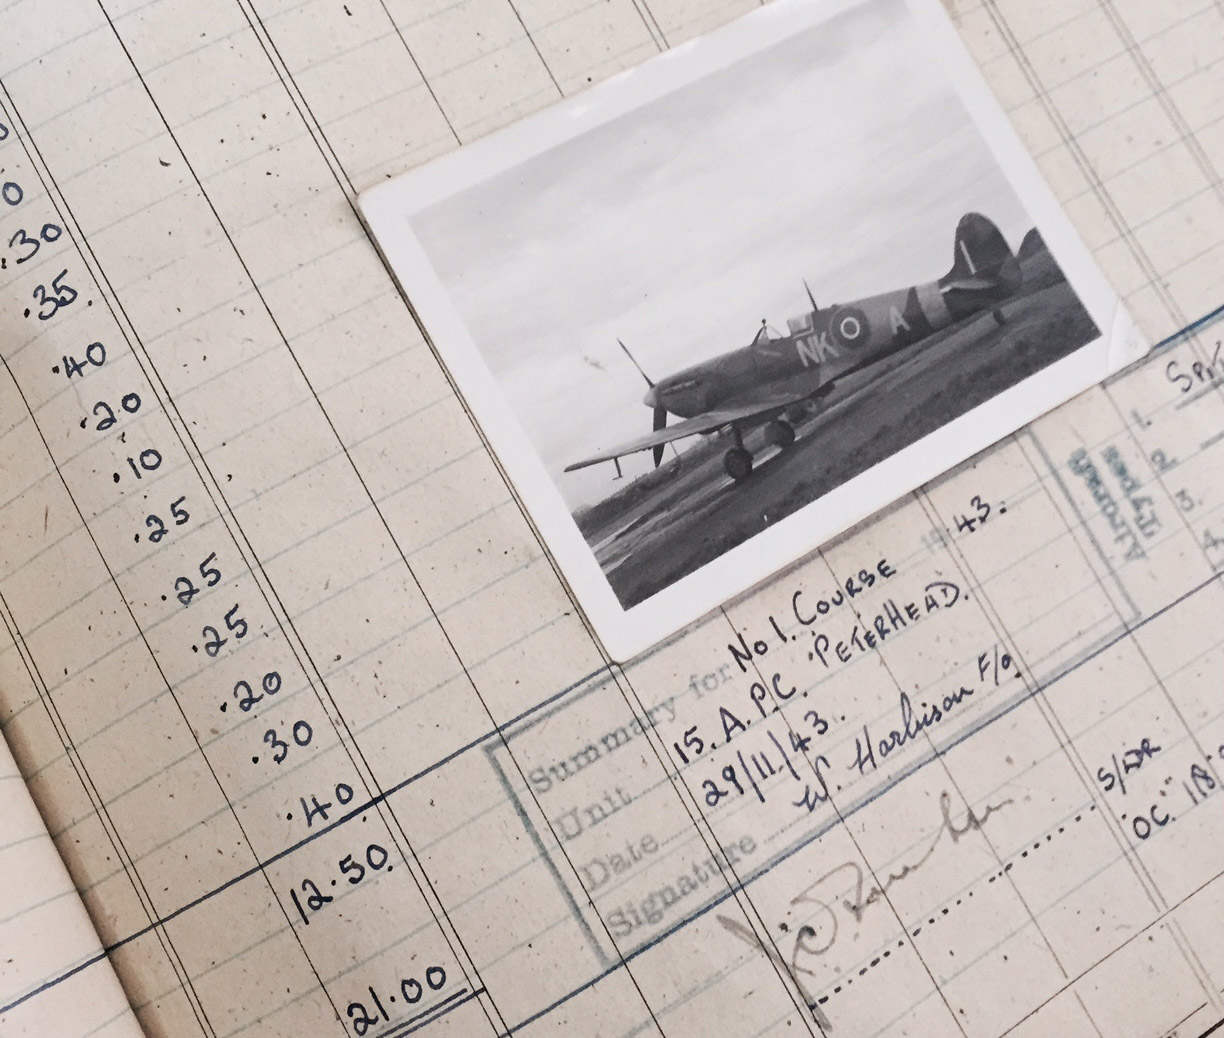 .30
.35.
.40
.20
.10
.25
.25
.25
.20
.30
.40
12.50
21.00
NK A
Summary for No 1. COURSE 1943.
Unit 15. A.P.C. PETERHEAD.
Date 29/11/43.
Signature W. Harbison F/O.
Aircraft
Types
1.
2
3.
4
S/LDR
O.C. 118